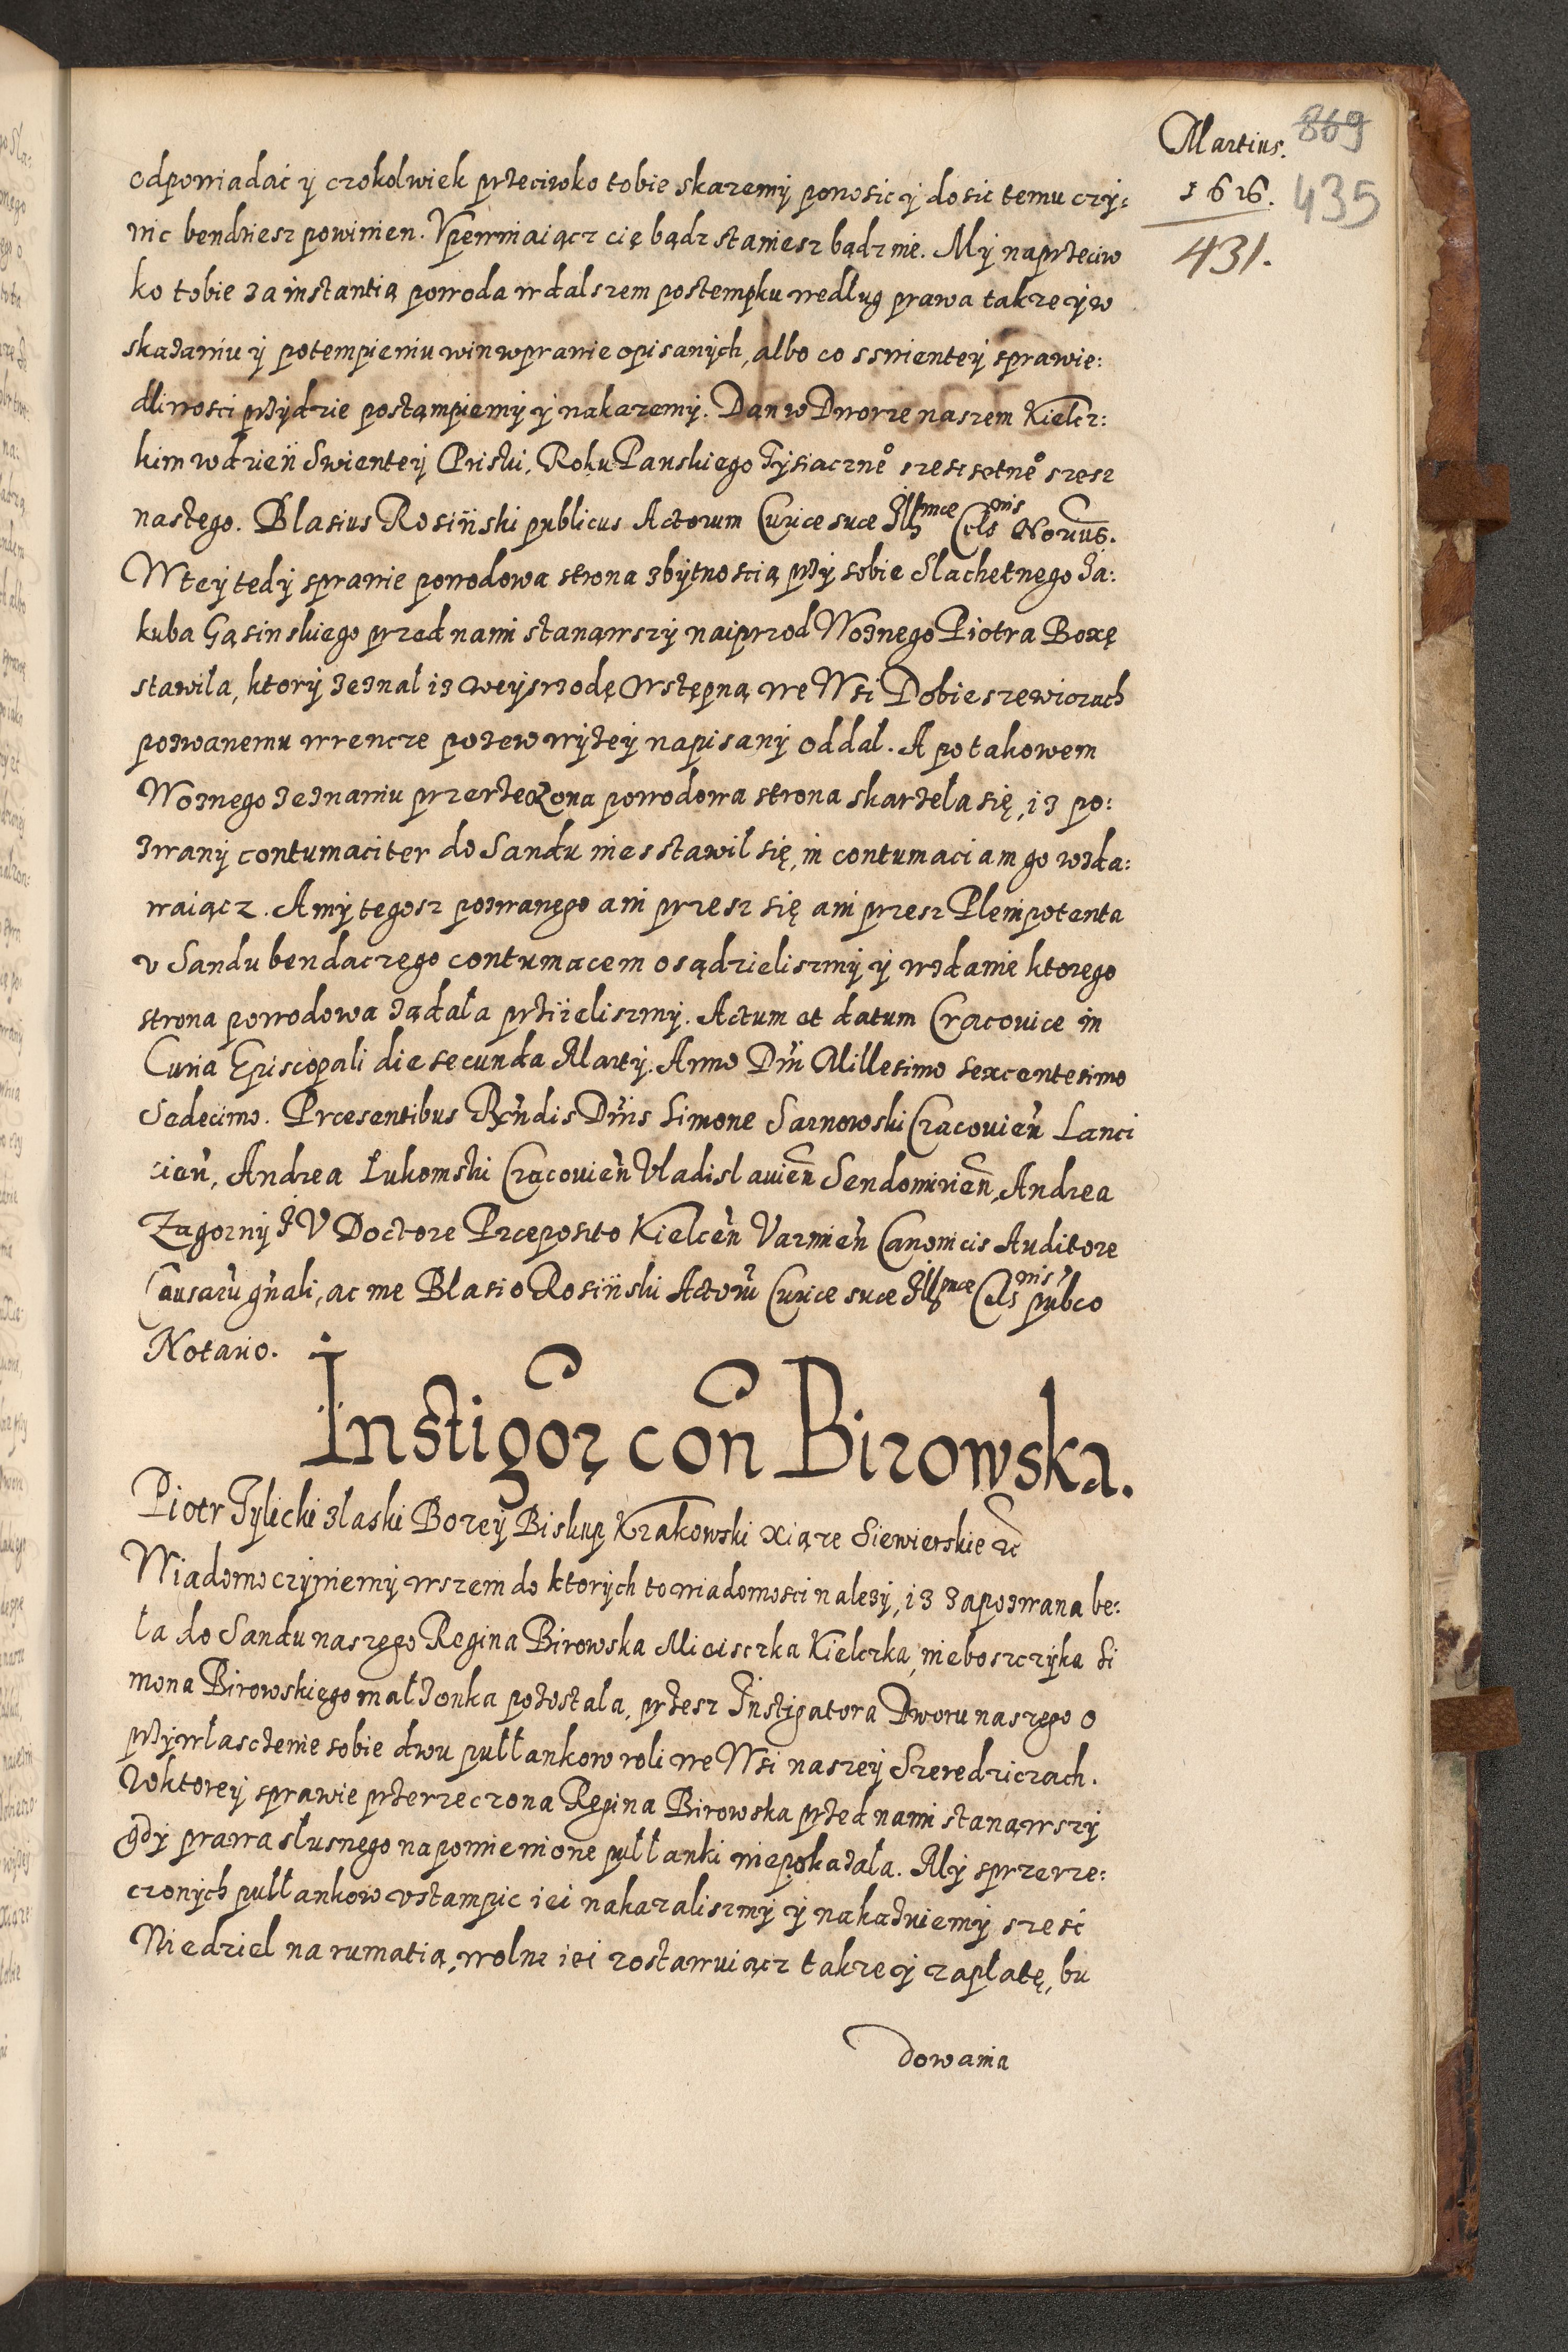 Martius.
869
1616.
435
431.
odpowiadać y czokolwiek przeciwko tobie skazemy ponosic y dosic temu czy:
nic bendziesz powinien. Vpewniaiącz cię bądz staniesz bądz nie. My naprzeciw
ko tobie za instantią powoda w dalszem postempku według prawa takze y w
skazaniu y potempieniu win w prawie opisanych, albo co sswientey sprawie:
dliwosci przydzie postąmpiemy y nakazemy. Dan w Dworze naszem Kielcz:
kim w dzień Swientey Priski, Roku Panskiego Tysiacznego szescsetnego szesz
nastego. Blasius Rosiński publicus Actorum Curiæ suæ Illmæ Celsnis Notarius.
W tey tedy sprawie powodowa strona z bytnoscią przy sobie Slachetnego Ja:
kuba Gąsinskiego przed nami stanąwszy naiprzod Woznego Piotra Boxę
stawiła, ktory zeznal iz wey srzodę Wstępną we Wsi Dobieszewiczach
pozwanemu wrencze pozew wyzey napisany oddal. A po takowem
Woznego zeznaniu przerzeczona powodowa strona skarzela się, iz po:
zwany contumaciter do Sandu nie sstawil się, in contumaciam go wzda:
waiącz. A my tegosz pozwanego ani przesz się ani przesz Plenipotenta
v Sandu bendaczego contumacem osądzieliszmy y wzdanie ktorego
strona powodowa ządała prziieliszmy. Actum et datum Cracoviæ in
Curia Episcopali die secunda Marty. Anno Dni Millesimo sexcentesimo
Sedecimo. Præsentibus Rndis Dnis Simone Sarnowski Cracovien Lanci
cien, Andrea Łukomski Cracovien Vladislavien Sendomirien, Andrea
Zagorny I V Doctore Præposito Kielcen Varmien Canonicis Auditore
Causaru gnali, ac me Blasio Rosiński Actoru Curiæ suæ Illmæ Celsnis pubco
Notario.
Instigor con Birowska.
Piotr Tylicki z laski Bozey Biskup Krakowski Xiąze Siewierskie etc
Wiadomo czyniemy wszem do ktorych to wiadomosci nalezy, iz zapozwana be:
ła do Sandu naszego Regina Birowska Miesczka Kielczka, nieboszczyka Si
mona Birowskiego małzonka pozostala, przesz Instigatora Dworu naszego o
przywlasczenie sobie dwu pułłankow roli we Wsi naszey Szeredziczach.
W ktorey sprawie przerzeczona Regina Birowska przed nami stanąwszy
gdy prawa słusnego na pomienione pułłanki niepokazala. My sprzerze:
czonych pułłankow vstampic iei nakazaliszmy y nakazuiemy szesć
Niedziel na rumatią, wolne iei zostawuiącz takze y zapłatę, bu
dowania